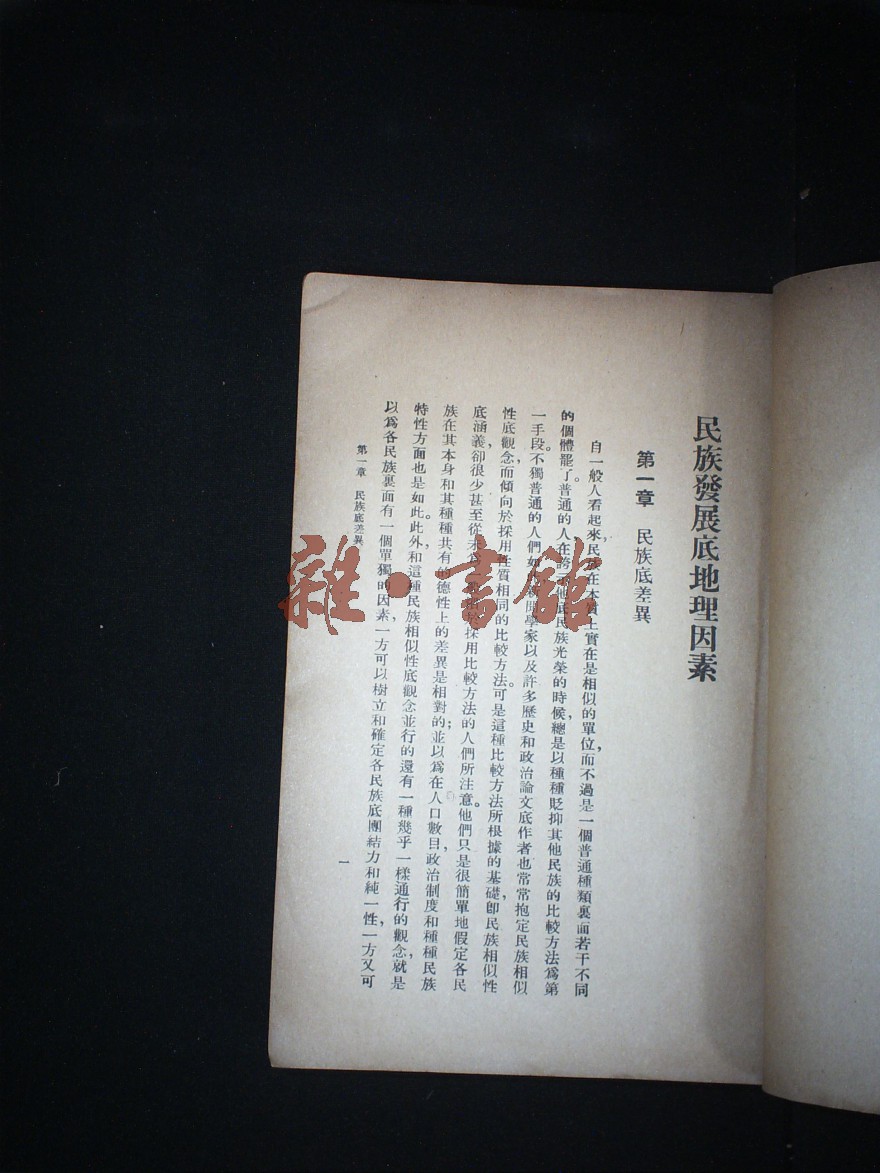 民族發展底地理因素
第一章　民族底差異
自一般人看起來，民族在本質上實在是相似的單位，而不過是一個普通種類裏面若干不同
的個體罷了。普通的人在誇示他底民族光榮的時候，總是以種種貶抑其他民族的比較方法爲第
一手段。不獨普通的人們如此，新聞學家以及許多歷史和政治論文底作者也常常抱定民族相似
性底觀念，而傾向於採用性質相同的比較方法。可是這種比較方法所根據的基礎，卽民族相似性
底涵義，卻很少甚至從未爲於採用比較方法的人們所注意。他們只是很簡單地假定各民
族在其本身和其種種共有的德性上的差異是相對的；並以爲在人口數目，政治制度和種種民族
特性方面也是如此。此外，和這種民族相似性底觀念並行的，還有一種幾乎一樣通行的觀念，就是
以爲各民族裏面有一個單獨的因素，一方可以樹立和確定各民族底團結力和純一性，一方又可
第一章　民族底差異
一
雜·書館